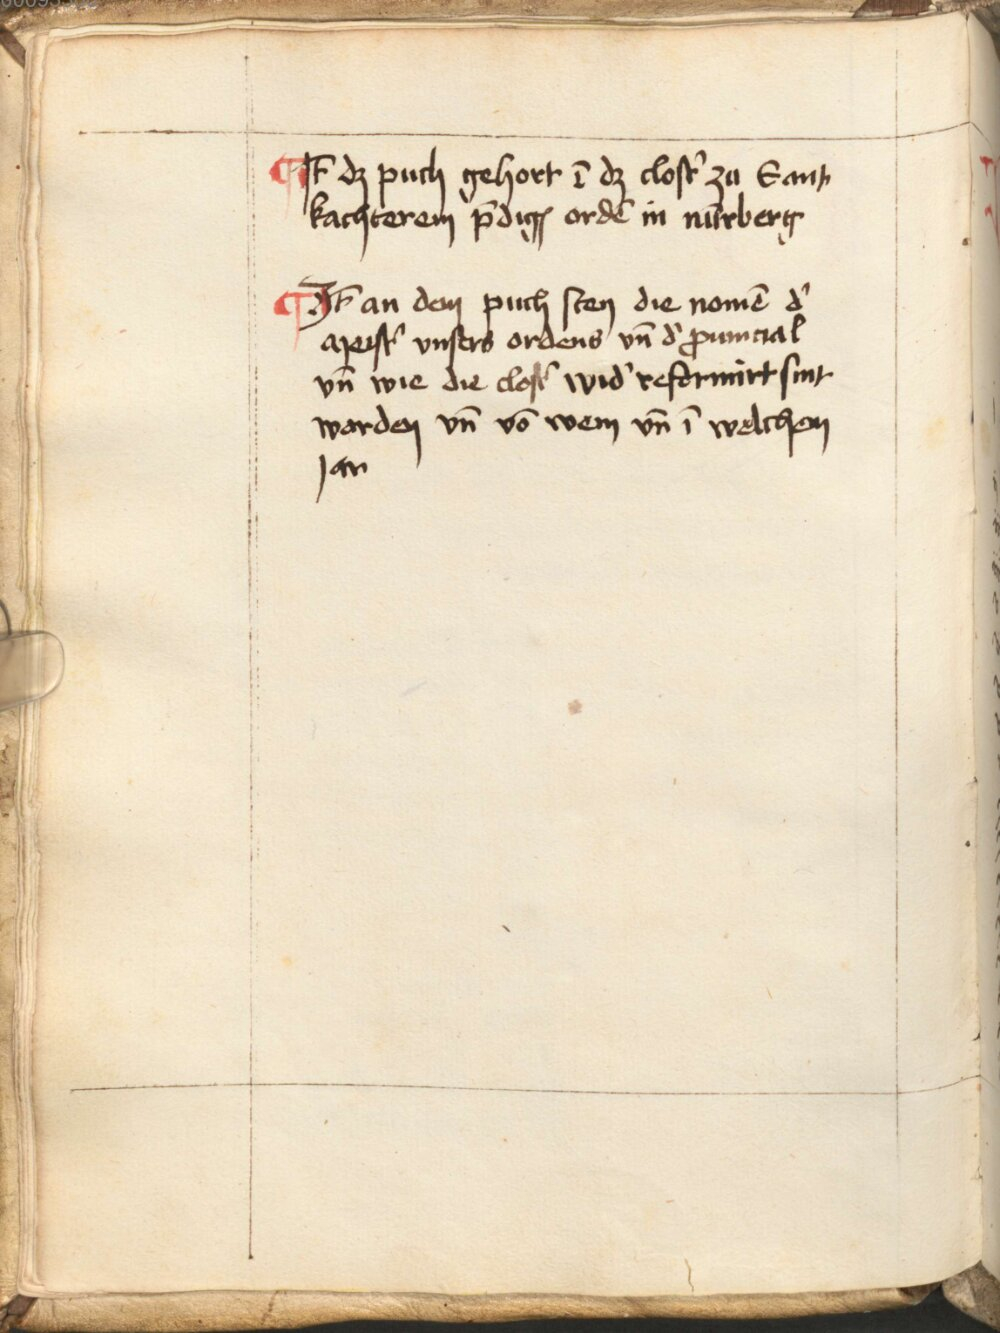 ¶ Jt̄ dz puch gehort ī dz clost' zu Sant
kachterein p̄digs ordē in nūrberg
¶ Jt̄ an dem puch sten die nomē d'
meist' vnsers ordens vn̄ d' prouincial
vn̄ wie die clost' wid' reformirt sint
worden vn̄ vō wem vn̄ ī welchem
jar